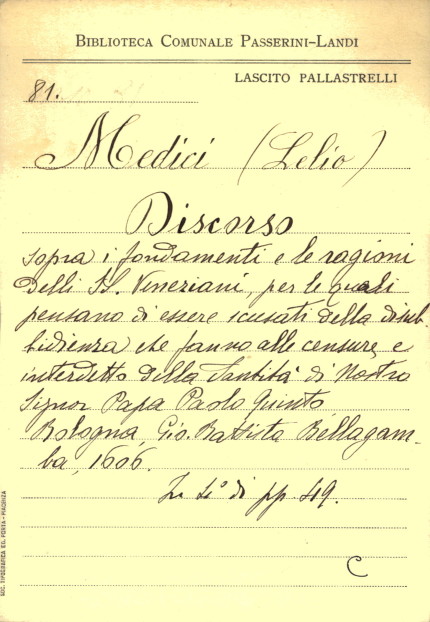 BIBLIOTECA COMUNALE PASSERINI-LANDI
LASCITO PALLASTRELLI
81.
Medici (Lelio)
Discorso
sopra i fondamenti e le ragioni
delli SS. Veneziani, per le quali
pensano di essere scusati della disub-
bidienza che fanno alle censure, e
interdetto della Santità di Nostro
Signor Papa Paolo Quinto
Bologna, Gio. Battista Bellagam-
ba, 1606.
In 4° di pp. 49.
C
SOC. TIPOGRAFICA ED. PORTA - PIACENZA